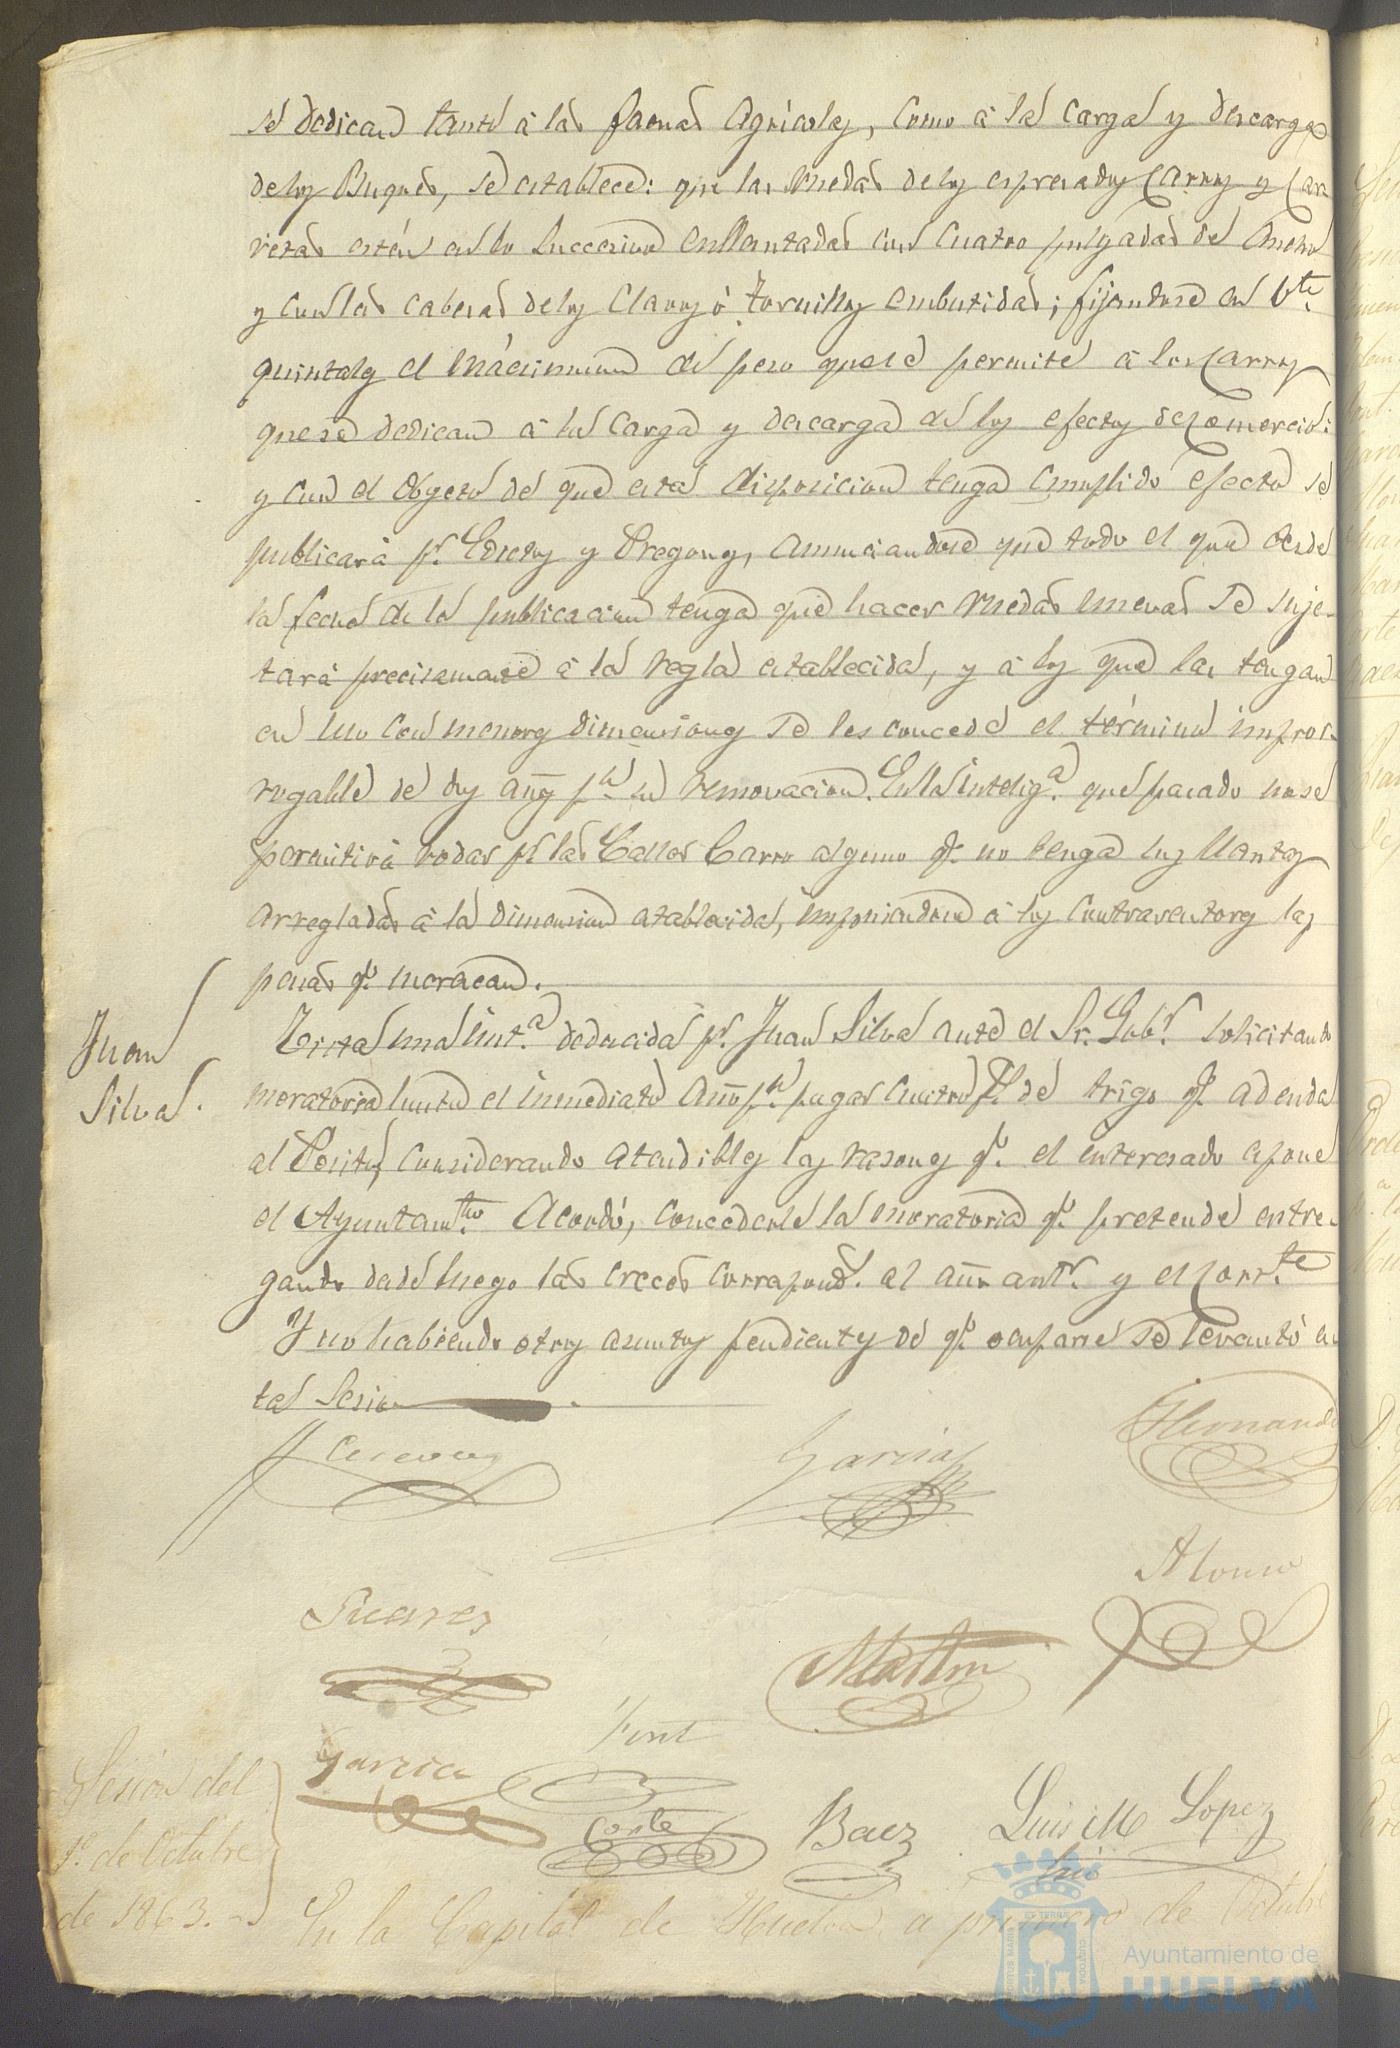 se dedican tanto à las faenas Agrícolas, como à la carga y descarga
de los Buques, se establece: que las ruedas de los espresados Carros y Car-
retas estén en lo succesivo enllantadas con cuatro pulgadas de ancho
y con las cabezas de los Clavos ó tornillos embutidas; fijandose en Vte.
quintales el máximum de peso que se permite à los Carros
que se dedican à la carga y descarga de los efectos de Comercio:
y con el Obgeto de que esta disposicion tenga cumplido efecto se
publicará pr. Edictos y Pregones, anunciandose que todo el que desde
la fecha de la publicacion tenga que hacer ruedas nuevas se suje-
tará precisamente à la regla establecida, y à los que las tengan
en uso con menores dimensiones se les concede el término impror-
rogable de dos años pa. su renovacion. En la inteliga. que pasado no se
permitirá rodar pr. las Calles Carro alguno qe. no tenga sus llantas
arregladas à la dimension establecida, imponiendose à los contraventores las
penas qe. merezcan.
Juan
Silva.
Vista una inta. deducida pr. Juan Silva ante el Sr. Gobr. solicitando
moratoria hasta el inmediato año pa. pagar cuatro fs. de trigo qe. adeuda
al Posito, considerando atendibles las razones qe. el interesado espone
el Ayuntamto. Acordó, concederle la moratoria qe. pretende entre-
gando desde luego las creces correspond.s al año antr. y el corrte.
Y no habiendo otros asuntos pendientes de qe. ocuparse se levantó es-
ta Sesion.
Garcia
Hernand
Alonso
Suarez
Martin
Font
Garcia
Corte
Baez
Luis M Lopez
Srio
Sesión del
1º. de Octubre
de 1863.-
En la Capital de Huelva a primero de Octubre
Ayuntamiento de
HUELVA